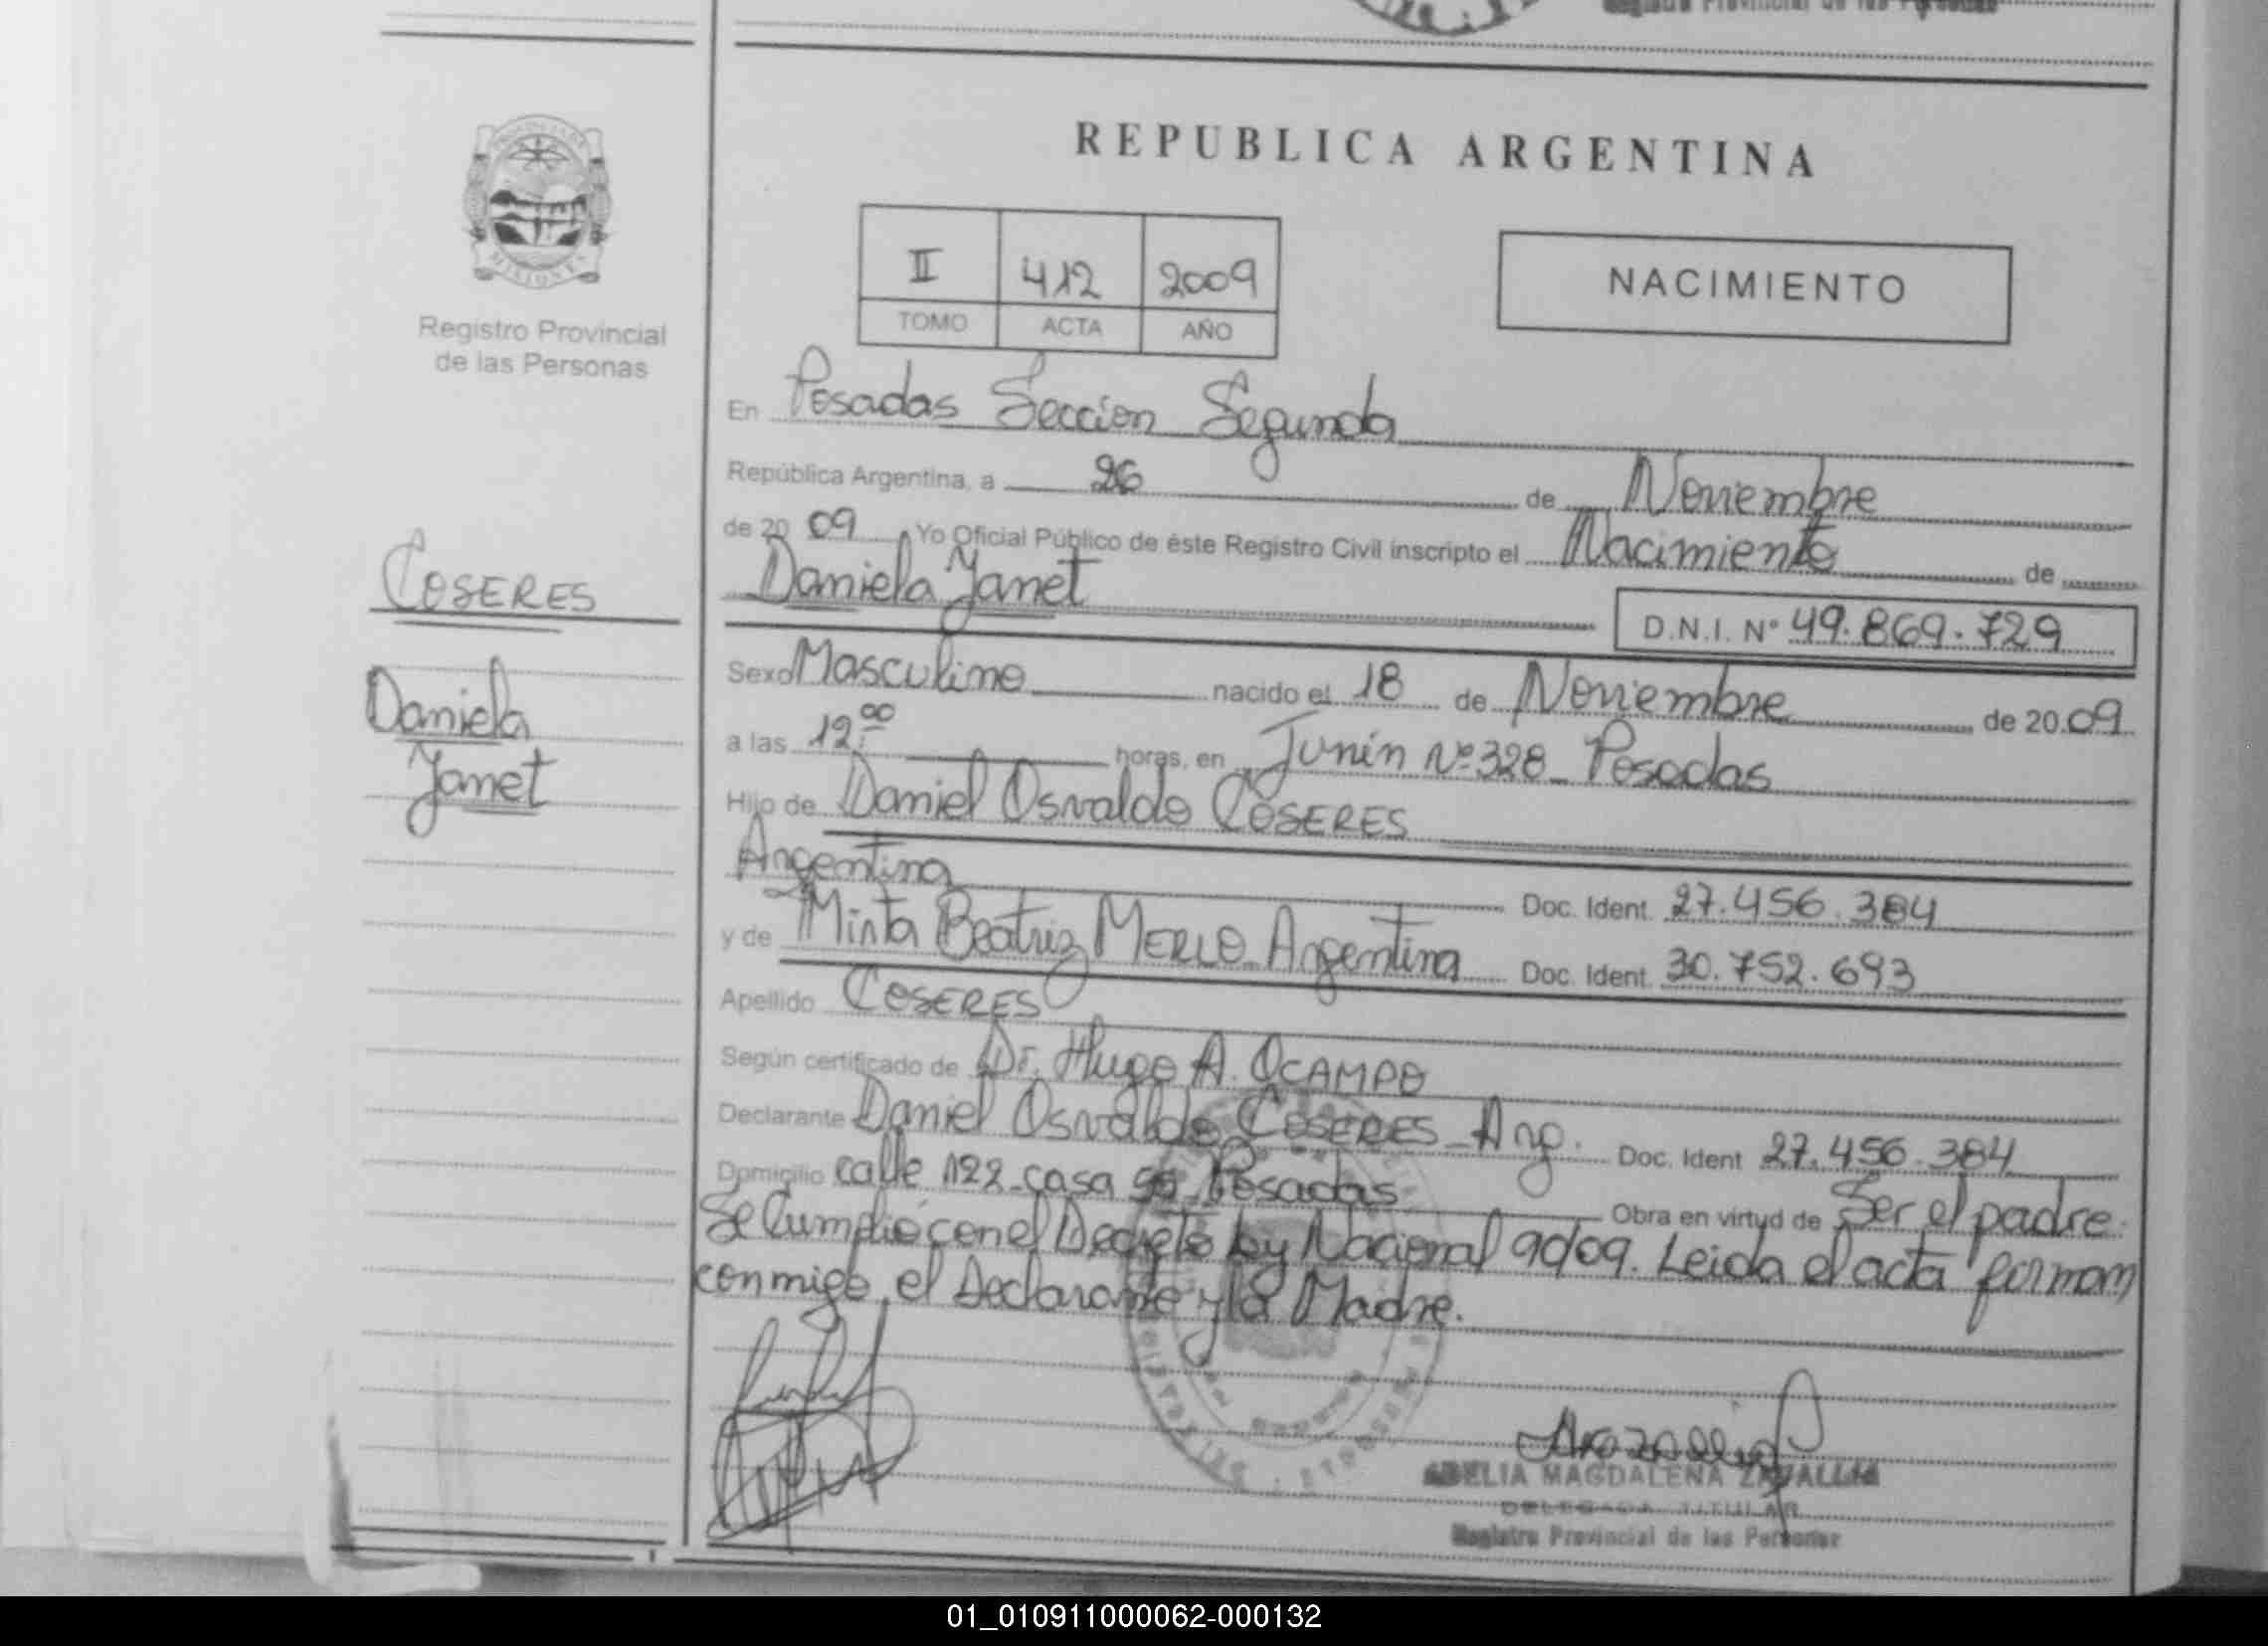 Registro Provincial de las Personas
REPUBLICA ARGENTINA
PROVINCIA DE
MISIONES
Registro Provincial
de las Personas
II 412 2009
TOMO ACTA AÑO
NACIMIENTO
COSERES
Daniela
Janet
En Posadas Seccion Segunda
República Argentina, a 26 de Noviembre
de 20 09 Yo Oficial Público de éste Registro Civil inscripto el Nacimiento de
Daniela Janet D.N.I. Nº 49.869.729
Sexo Masculino nacido el 18 de Noviembre de 20 09
a las 12:00 horas, en Junin Nº 328 - Posadas
Hijo de Daniel Osvaldo COSERES
Argentina Doc. Ident. 27.456.384
y de Mirta Beatriz MERLO - Argentina Doc. Ident. 30.752.693
Apellido COSERES
Según certificado de Dr. Hugo A. OCAMPO
Declarante Daniel Osvaldo COSERES - Arg. Doc. Ident 27.456.384
Domicilio calle 122 - casa - Posadas Obra en virtud de Ser el padre.
Se Cumplio con el Decreto Ley Nacional 90/09. Leida el acta firman
conmigo, el Declarante y la Madre.
ADELIA MAGDALENA ZAVALLIA
DELEGADA TITULAR
Registro Provincial de las Personas
01_010911000062-000132